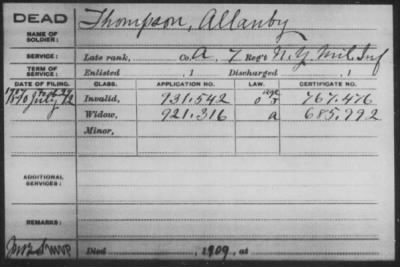 DEAD Thompson, Allanby
NAME OF SOLDIER:
SERVICE: Late rank, Co. A, 7 Reg't N.Y. Mil Inf
TERM OF SERVICE: Enlisted , 1 Discharged , 1
DATE OF FILING. CLASS. APPLICATION NO. LAW. CERTIFICATE NO.
Invalid, 931.542 767.476
July 12 Widow, 921.316 a 685.992
Minor,
ADDITIONAL SERVICES:
REMARKS:
Died , 1909, at